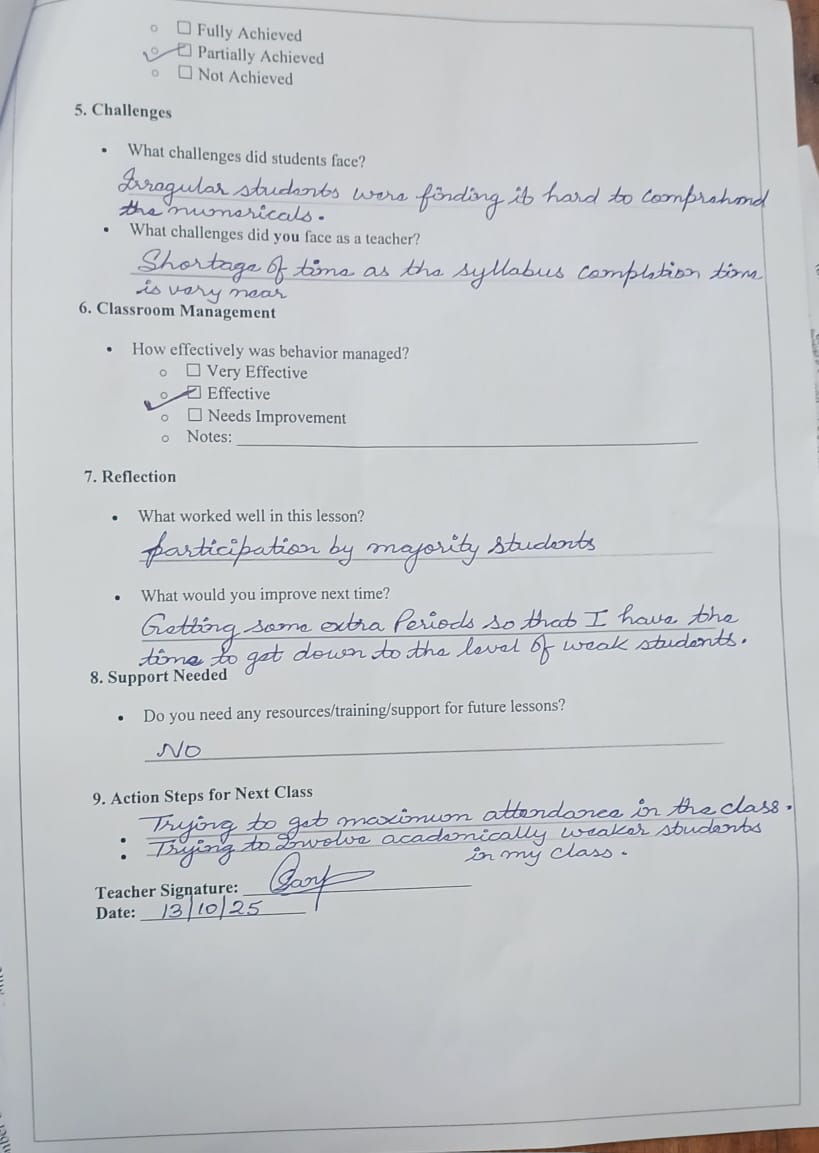 ☐ Fully Achieved
☑ Partially Achieved
☐ Not Achieved
5. Challenges
• What challenges did students face?
Irregular students were finding it hard to comprehend
the numericals.
• What challenges did you face as a teacher?
Shortage of time as the syllabus completion time
is very near
6. Classroom Management
• How effectively was behavior managed?
☐ Very Effective
☑ Effective
☐ Needs Improvement
Notes:
7. Reflection
• What worked well in this lesson?
participation by majority students
• What would you improve next time?
Getting some extra Periods so that I have the
time to get down to the level of weak students.
8. Support Needed
• Do you need any resources/training/support for future lessons?
NO
9. Action Steps for Next Class
• Trying to get maximum attendance in the class.
• Trying to Involve academically weaker students
in my class.
Teacher Signature:
Date: 13/10/25